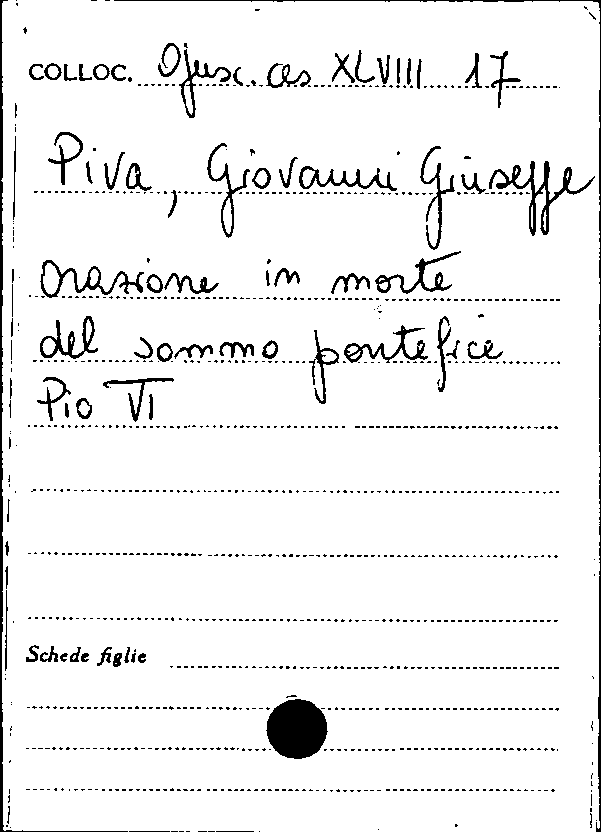 COLLOC. Opusc. ces XLVIII 17
Piva, Giovanni Giuseppe
orazione in morte
del sommo pontefice
Pio VI
Schede figlie